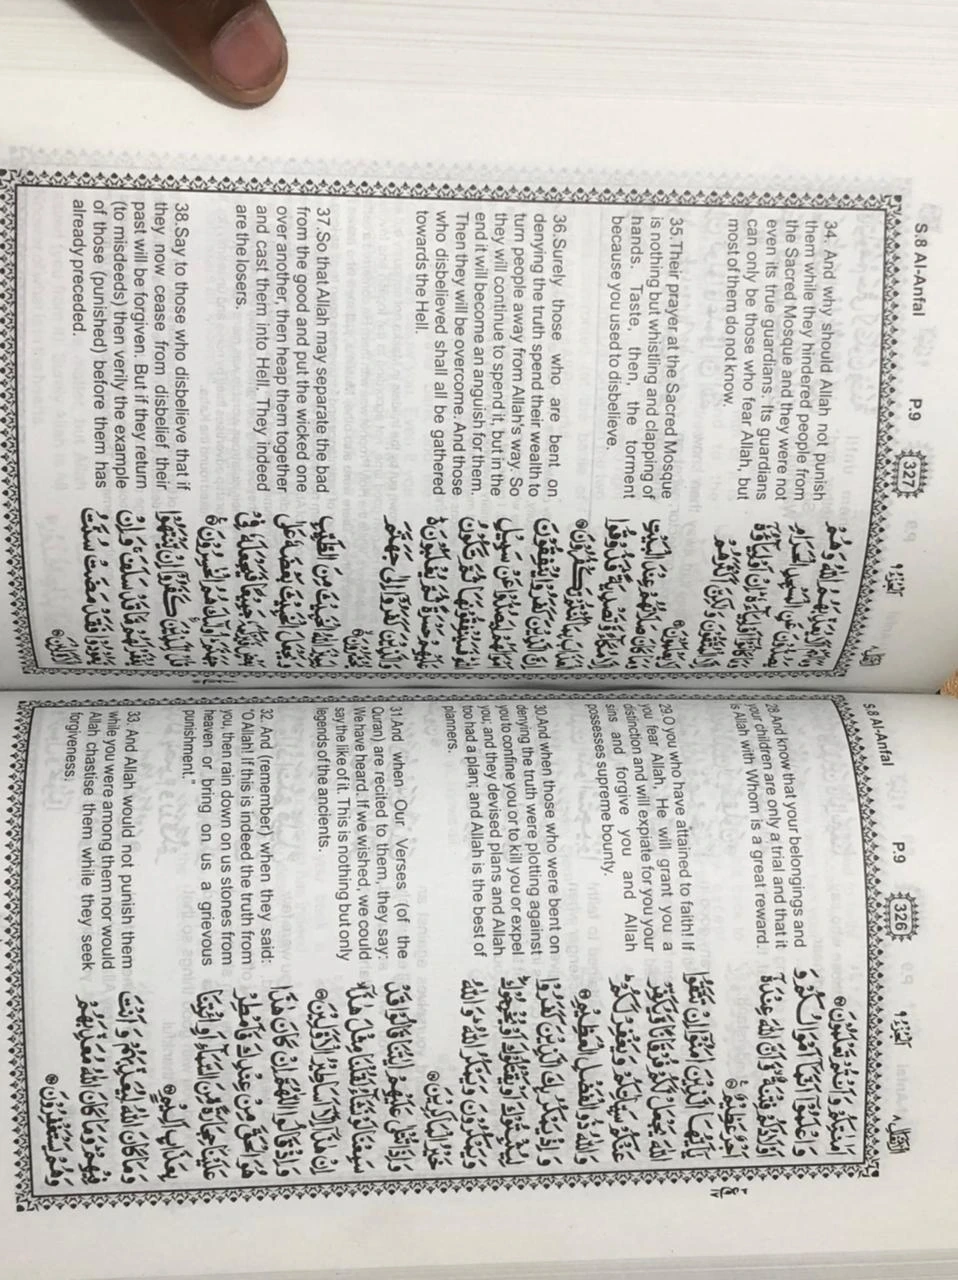 S.8 Al-Anfal
P.9
326
اَلْجُزْءُ ٩
اَلْاَنْفَال ٨
28.And know that your belongings and
your children are only a trial and that it
is Allah with Whom is a great reward.
29.O you who have attained to faith! If
you fear Allah, He will grant you a
distinction and will expiate for you your
sins and forgive you and Allah
possesses supreme bounty.
30.And when those who were bent on
denying the truth were plotting against
you to confine you or to kill you or expel
you; and they devised plans and Allah
too had a plan; and Allah is the best of
planners.
31.And when Our Verses (of the
Quran) are recited to them, they say:
We have heard. If we wished, we could
say the like of it. This is nothing but only
legends of the ancients.
32. And (remember) when they said:
"O Allah! If this is indeed the truth from
you, then rain down on us stones from
heaven or bring on us a grievous
punishment."
33. And Allah would not punish them
while you were among them nor would
Allah chastise them while they seek
forgiveness.
اَمٰنٰتِكُمْ وَاَنْتُمْ تَعْلَمُوْنَ
وَاعْلَمُوْۤا اَنَّمَاۤ اَمْوَالُكُمْ وَ
اَوْلَادُكُمْ فِتْنَةٌ وَّاَنَّ اللّٰهَ عِنْدَهٗۤ
اَجْرٌ عَظِيْمٌ
يٰۤاَيُّهَا الَّذِيْنَ اٰمَنُوْۤا اِنْ تَتَّقُوا
اللّٰهَ يَجْعَلْ لَّكُمْ فُرْقَانًا وَّيُكَفِّرْ
عَنْكُمْ سَيِّاٰتِكُمْ وَيَغْفِرْ لَكُمْ
وَاللّٰهُ ذُو الْفَضْلِ الْعَظِيْمِ
وَاِذْ يَمْكُرُ بِكَ الَّذِيْنَ كَفَرُوْا
لِيُثْبِتُوْكَ اَوْ يَقْتُلُوْكَ اَوْ يُخْرِجُوْكَ
وَيَمْكُرُوْنَ وَيَمْكُرُ اللّٰهُ وَاللّٰهُ
خَيْرُ الْمٰكِرِيْنَ
وَاِذَا تُتْلٰى عَلَيْهِمْ اٰيٰتُنَا قَالُوْا قَدْ
سَمِعْنَا لَوْ نَشَآءُ لَقُلْنَا مِثْلَ هٰذَاۤ
اِنْ هٰذَاۤ اِلَّاۤ اَسَاطِيْرُ الْاَوَّلِيْنَ
وَاِذْ قَالُوا اللّٰهُمَّ اِنْ كَانَ هٰذَا
هُوَ الْحَقَّ مِنْ عِنْدِكَ فَاَمْطِرْ
عَلَيْنَا حِجَارَةً مِّنَ السَّمَآءِ اَوِ ائْتِنَا
بِعَذَابٍ اَلِيْمٍ
وَمَا كَانَ اللّٰهُ لِيُعَذِّبَهُمْ وَاَنْتَ
فِيْهِمْ وَمَا كَانَ اللّٰهُ مُعَذِّبَهُمْ
وَهُمْ يَسْتَغْفِرُوْنَ
S.8 Al-Anfal
P.9
327
اَلْجُزْءُ ٩
34. And why should Allah not punish
them while they hindered people from
the Sacred Mosque and they were not
even its true guardians. Its guardians
can only be those who fear Allah, but
most of them do not know.
35.Their prayer at the Sacred Mosque
is nothing but whistling and clapping of
hands. Taste, then, the torment
because you used to disbelieve.
36.Surely those who are bent on
denying the truth spend their wealth to
turn people away from Allah's way. So
they will continue to spend it, but in the
end it will become an anguish for them.
Then they will be overcome. And those
who disbelieved shall all be gathered
towards the Hell.
37.So that Allah may separate the bad
from the good and put the wicked one
over another, then heap them together
and cast them into Hell. They indeed
are the losers.
38.Say to those who disbelieve that if
they now cease from disbelief their
past will be forgiven. But if they return
(to misdeeds) then verily the example
of those (punished) before them has
already preceded.
وَمَا لَهُمْ اَلَّا يُعَذِّبَهُمُ اللّٰهُ وَهُمْ
يَصُدُّوْنَ عَنِ الْمَسْجِدِ الْحَرَامِ
وَمَا كَانُوْۤا اَوْلِيَآءَهٗ اِنْ اَوْلِيَآؤُهٗۤ
اِلَّا الْمُتَّقُوْنَ وَلٰكِنَّ اَكْثَرَهُمْ
لَا يَعْلَمُوْنَ
وَمَا كَانَ صَلَاتُهُمْ عِنْدَ الْبَيْتِ
اِلَّا مُكَآءً وَّتَصْدِيَةً فَذُوْقُوا
الْعَذَابَ بِمَا كُنْتُمْ تَكْفُرُوْنَ
اِنَّ الَّذِيْنَ كَفَرُوْا يُنْفِقُوْنَ
اَمْوَالَهُمْ لِيَصُدُّوْا عَنْ سَبِيْلِ
اللّٰهِ فَسَيُنْفِقُوْنَهَا ثُمَّ تَكُوْنُ
عَلَيْهِمْ حَسْرَةً ثُمَّ يُغْلَبُوْنَ
وَالَّذِيْنَ كَفَرُوْۤا اِلٰى جَهَنَّمَ
يُحْشَرُوْنَ
لِيَمِيْزَ اللّٰهُ الْخَبِيْثَ مِنَ الطَّيِّبِ
وَيَجْعَلَ الْخَبِيْثَ بَعْضَهٗ عَلٰى
بَعْضٍ فَيَرْكُمَهٗ جَمِيْعًا فَيَجْعَلَهٗ فِيْ
جَهَنَّمَ اُولٰٓئِكَ هُمُ الْخٰسِرُوْنَ
قُلْ لِّلَّذِيْنَ كَفَرُوْۤا اِنْ يَّنْتَهُوْا
يُغْفَرْ لَهُمْ مَّا قَدْ سَلَفَ وَاِنْ
يَّعُوْدُوْا فَقَدْ مَضَتْ سُنَّتُ
الْاَوَّلِيْنَ